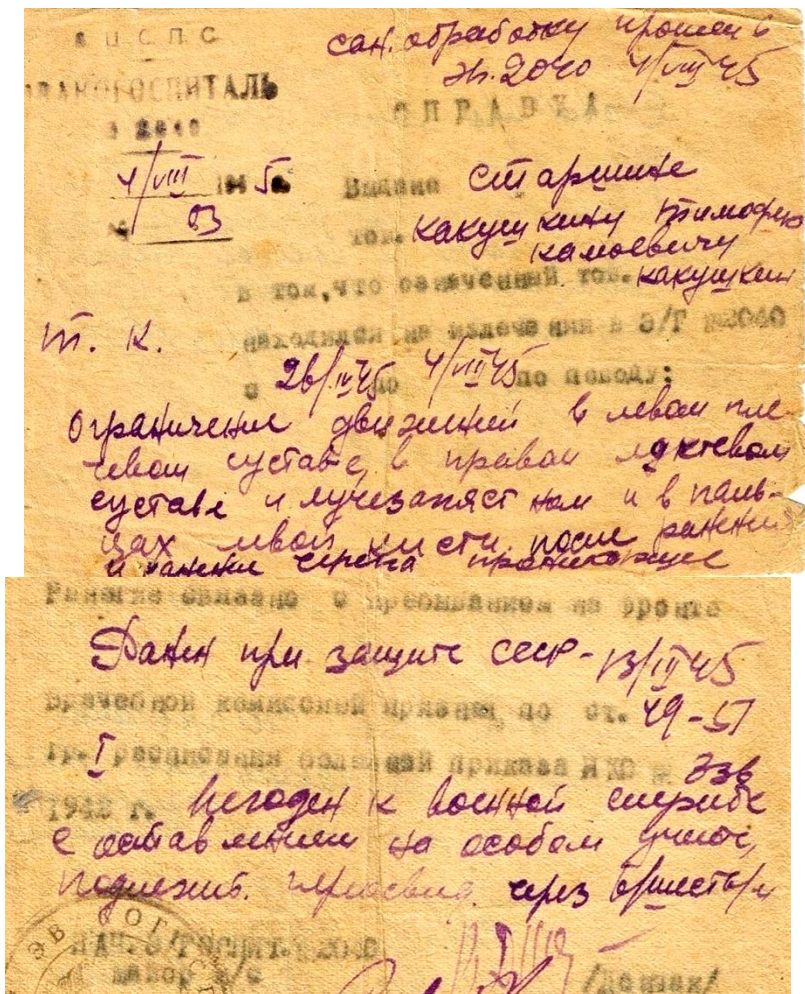 В Ц С П С
ЭВАКОГОСПИТАЛЬ
№ 2040
4/VIII 1945
№ 83
сан. обработку прошел в
эг. 2040 4/VIII 45
СПРАВКА
Выдана старшине
тов. Какушкину Тимофею
в том, что означенный тов. Какушкин
Т. К.
находился на излечении в Э/Г №2040
с 26/IV 45 по 4/VIII 45 по поводу:
Ограничение движений в левом пле-
чевом суставе, в правом локтевом
суставе и лучезапястном и в паль-
цах левой кисти после ранения
и ранения проникающее
Ранение связано с пребыванием на фронте
Ранен при защите СССР - 13/45
Врачебной комиссией признан по ст. 49-
гр. I расписания болезней приказа НКО № 336
1942 г. Негоден к военной службе
с оставлением на особом учете,
подлежит. переосвид. через 6/шесть/м
НАЧ. Э/ГОСПИТ. №2040
майор м/с